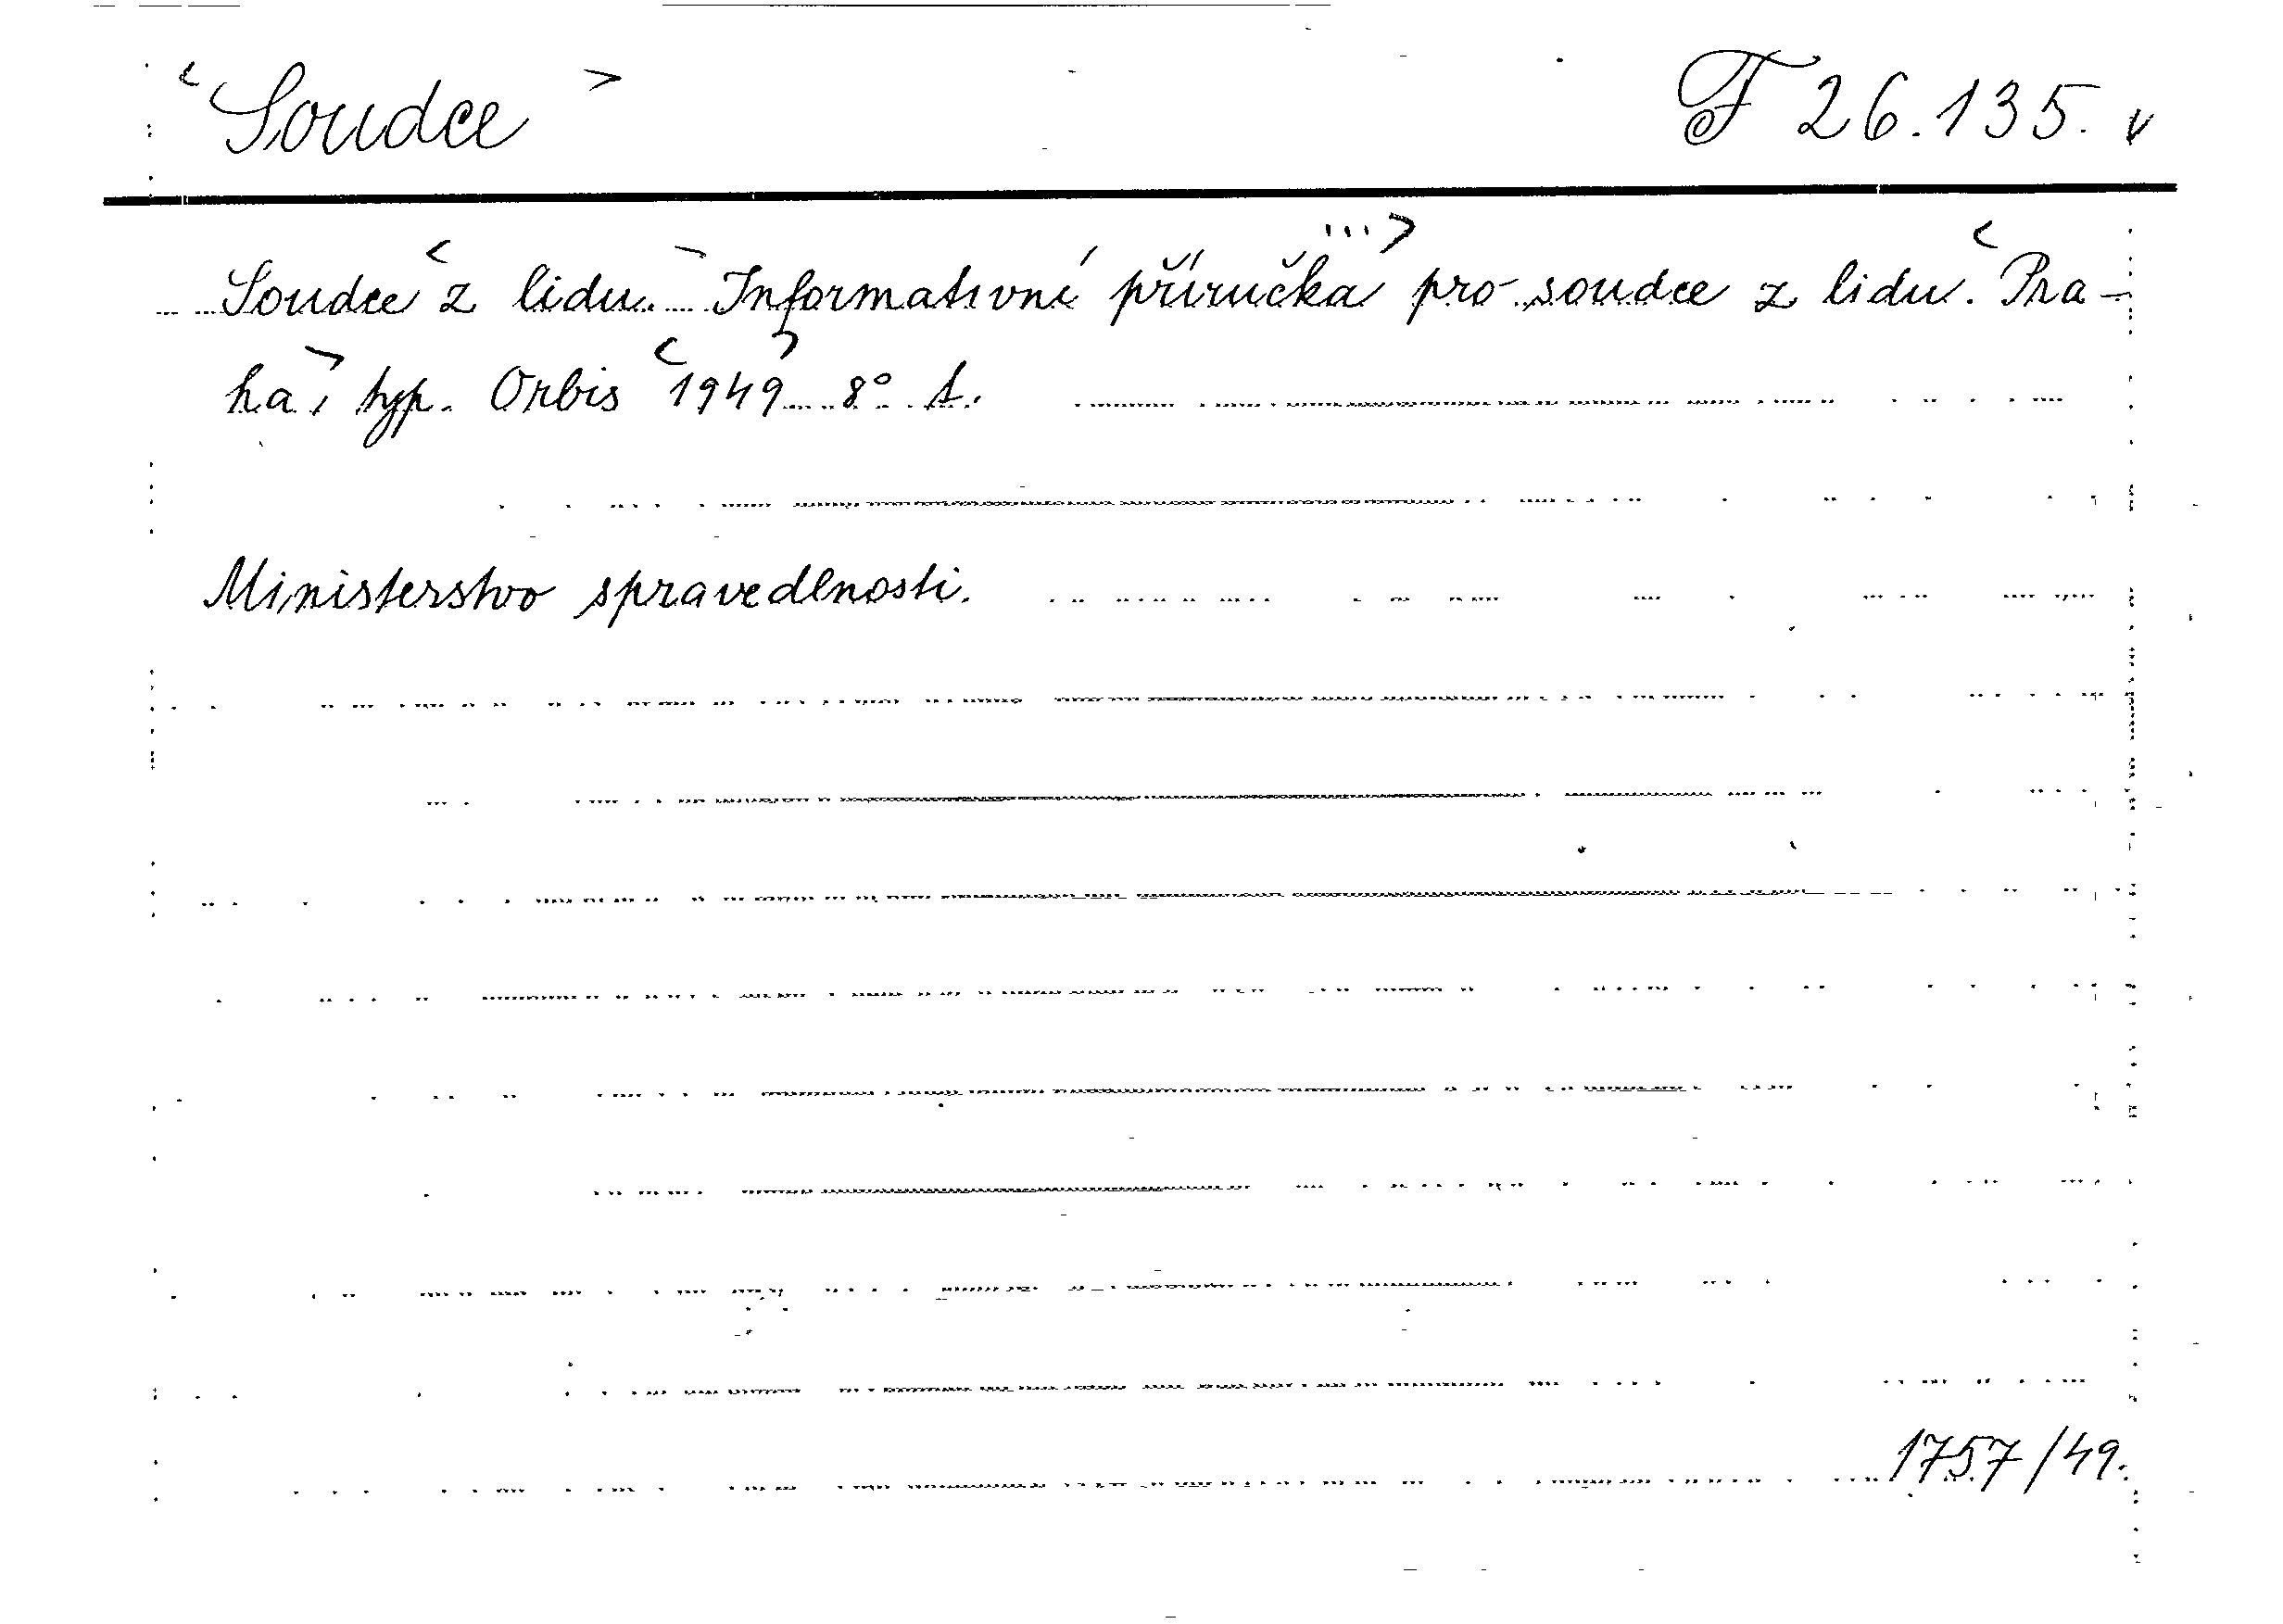 <Soudce> F 26.135. v
Soudce z lidu. Informativní příručka pro soudce z lidu. Pra-
ha, typ. Orbis 1949 8° 1.
Ministerstvo spravedlnosti.
1757/49.